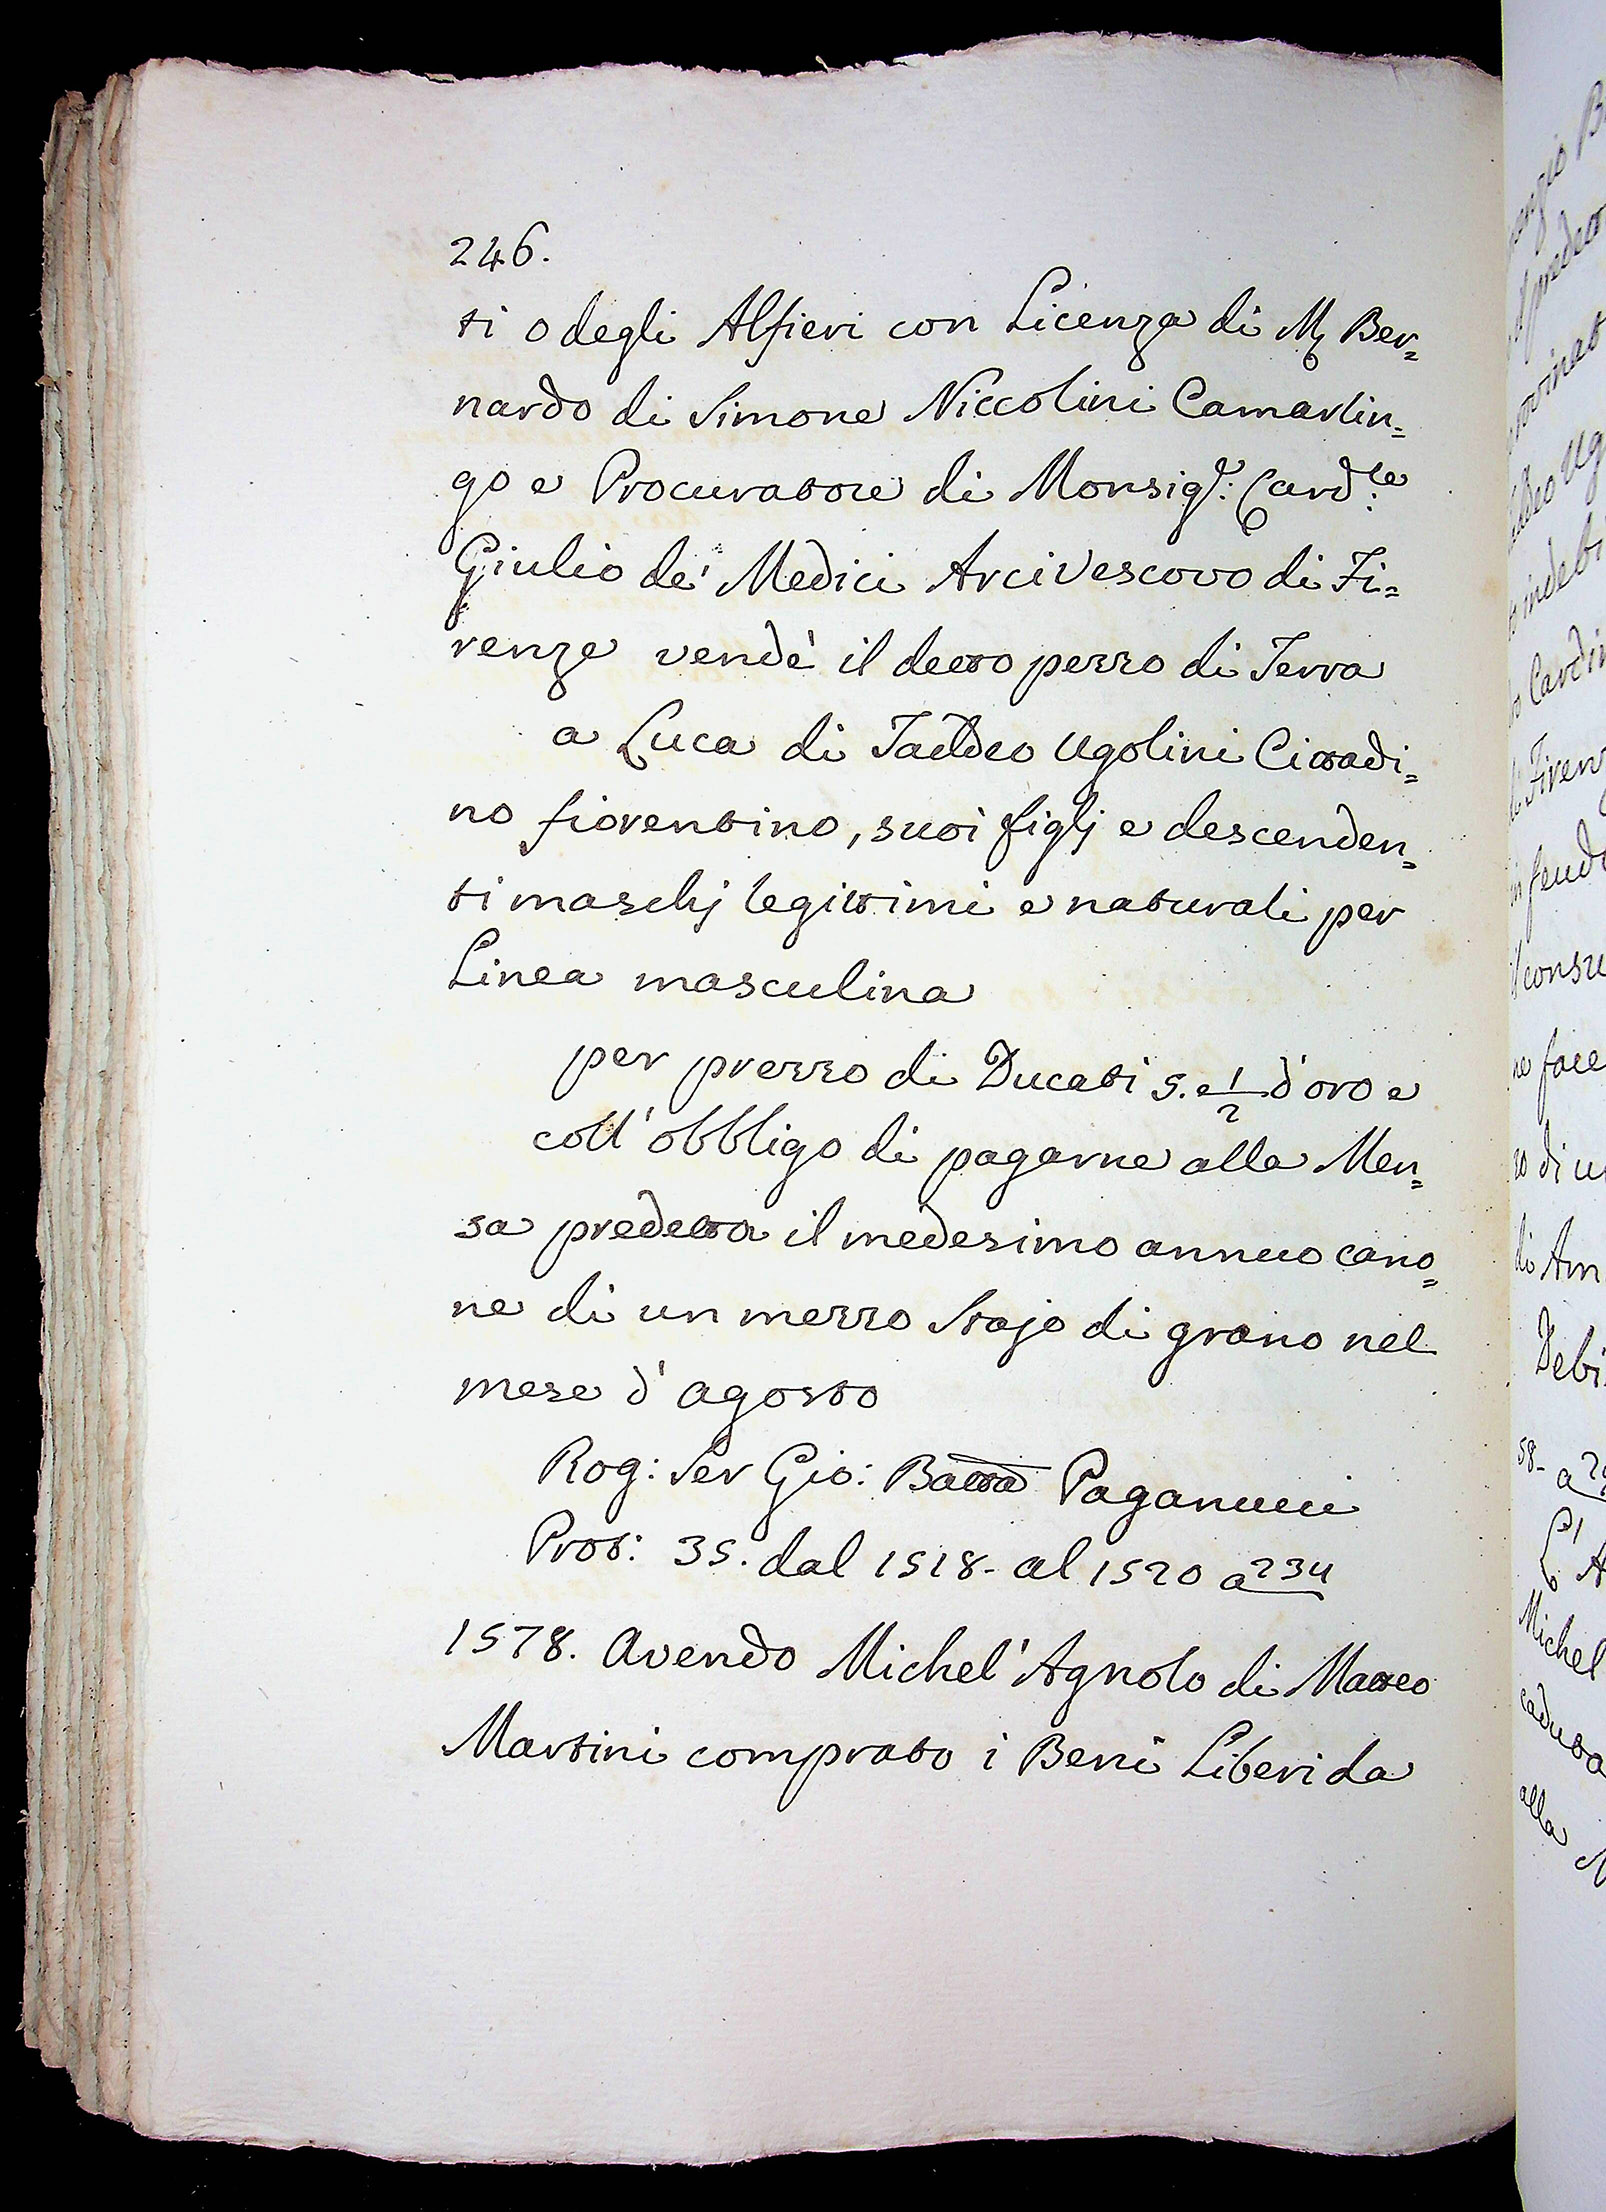 246.
ti o degli Alfieri con Licenza di M. Ber=
nardo di Simone Niccolini Camarlin=
go e Procuratore di Monsig.r: Card.le
Giulio de' Medici Arcivescovo di Fi=
renze vendè il detto pezzo di Terra
a Luca di Taddeo Ugolini Cittadi=
no fiorentino, suoi figlj e descenden=
ti maschj legittimi e naturali per
Linea masculina
per prezzo di Ducati 5. e 1/2 d'oro e
coll'obbligo di pagarne alla Men=
sa predetta il medesimo annuo cano=
ne di un mezzo Stajo di grano nel
mese d'agosto
Rog: Ser Gio: Batta Paganucci
Prot: 35. dal 1518- al 1520 a 234
1578. Avendo Michel'Agnolo di Matteo
Martini comprato i Beni Liberi da